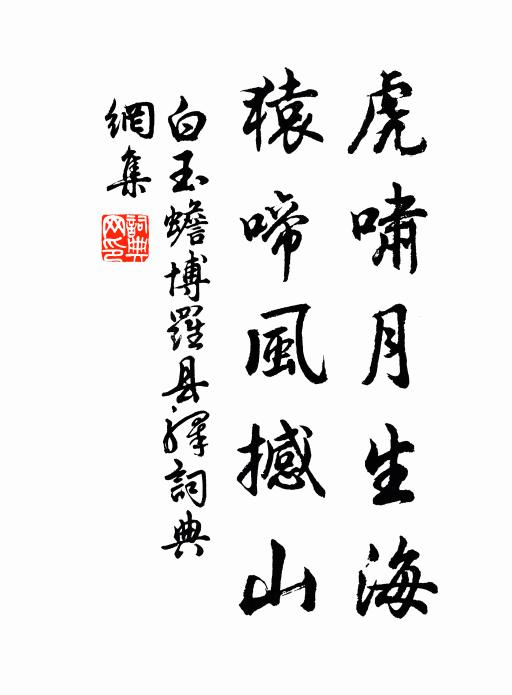 虎嘯月生海
猿啼風撼山
白玉蟾博羅县驛詞典
網集
詞典网印